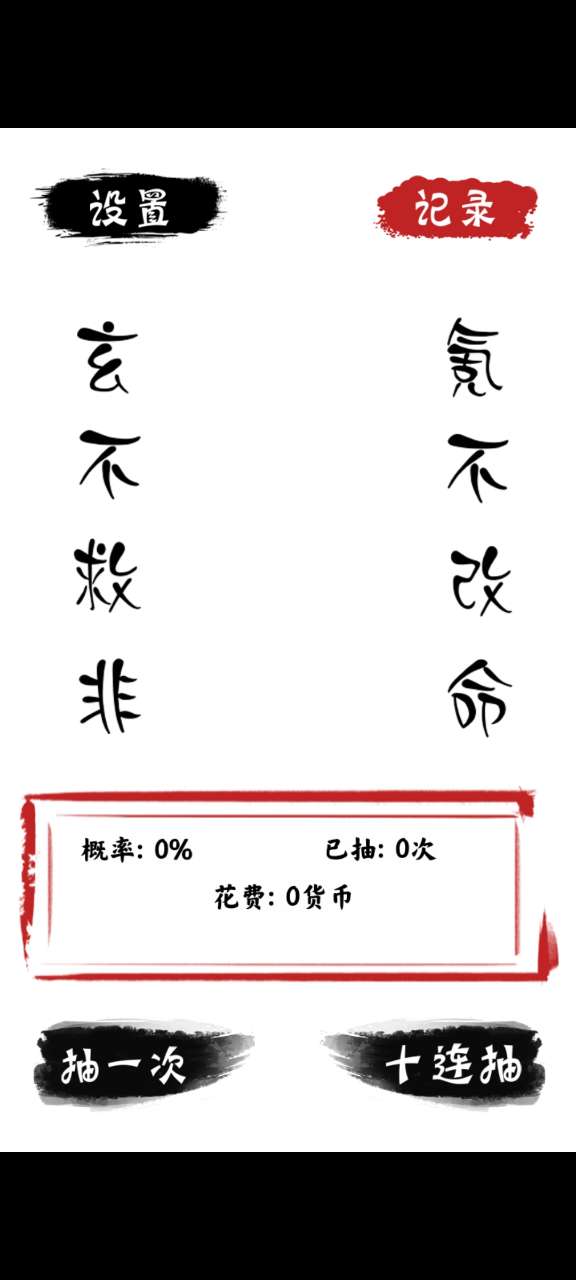 设置
记录
玄不救非
氪不改命
概率: 0%
已抽: 0次
花费: 0货币
抽一次
十连抽